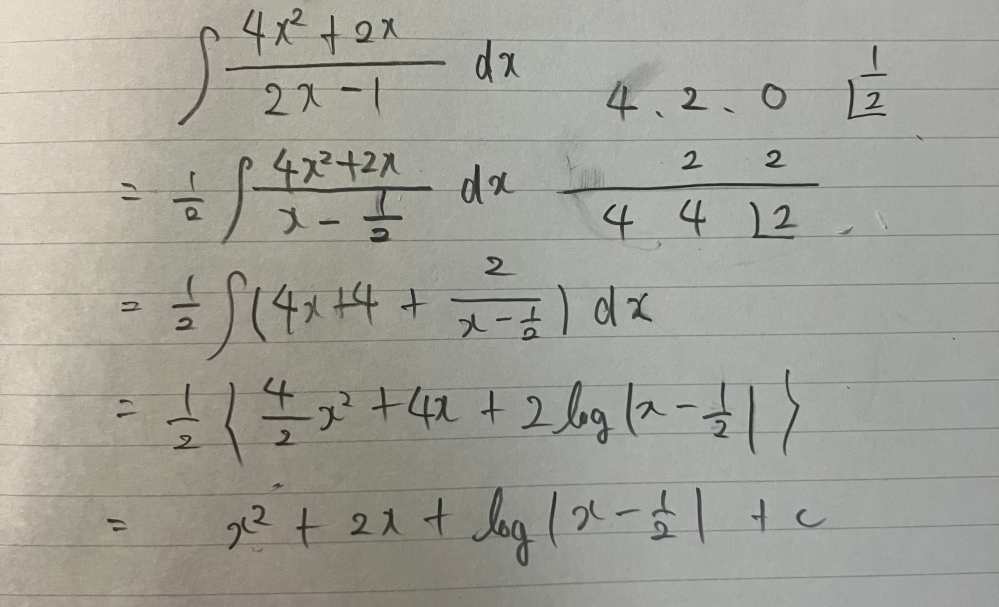 ∫ (4x² + 2x)/(2x − 1) dx
4 . 2 . 0 ⌊1/2
2 2
4 4 ⌋2
= 1/2 ∫ (4x²+2x)/(x − 1/2) dx
= 1/2 ∫ (4x+4 + 2/(x − 1/2)) dx
= 1/2 { 4/2 x² + 4x + 2 log|x − 1/2| }
= x² + 2x + log|x − 1/2| + c